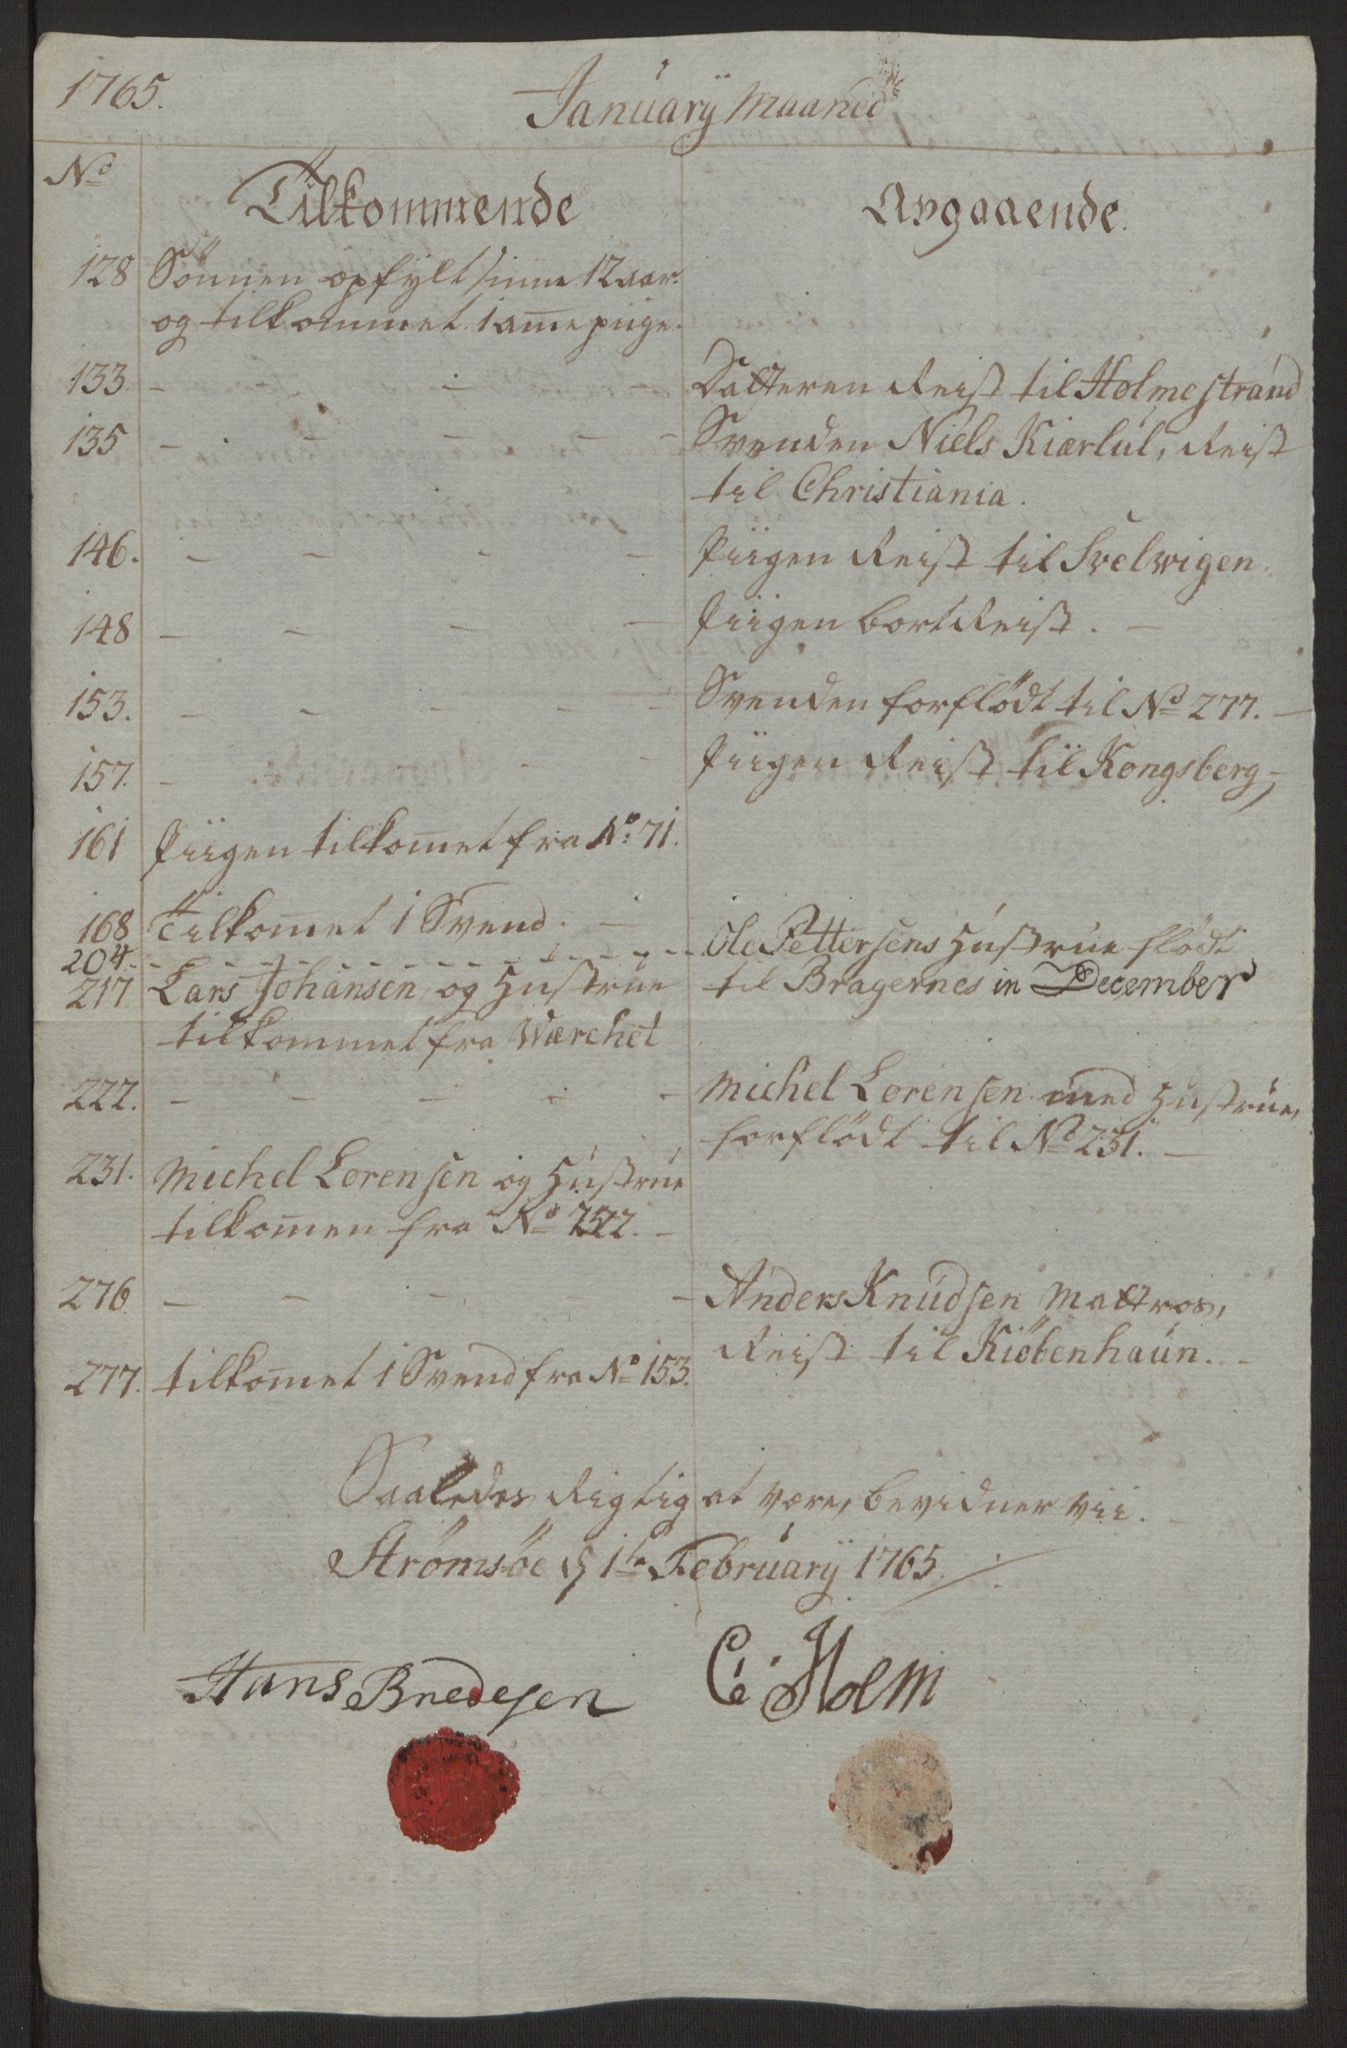 1765.
Januarÿ Maaned
No
Tilkommende
Avgaaende.
128 Sönnen opfylt sinne 12 aar.
og tilkommet 1 amepige.
133. - - Datteren Reist til Holmestrand
135 - - - - - Svenden Niels Kiærlul, Reist
til Christiania.
146. - - - - Piigen Reist til Svelwigen.
148 - - - - Piigen bort Reist. -
153. - - - - - Svenden forflödt til No 277. -
157. - - - Piigen Reist til Kongsberg -
161 Piigen tilkomet fra No: 71.
168 Tilkomet 1 Svend. -
204. - - - - - - Ole Pettersens Hustrue flödt
til Bragernes in December
217 Lars Johansen og Hustrue
tilkommet fra Værchet
222. - - - - - Michel Lorensen med Hustrue,
forflödt til No 231. -
231. Michel Lorensen og Hustrue
tilkomen fra No 222. -
276. - - - - - Anders Knudsen Mattros,
Reist til Kiöbenhaun. -
277. tilkomet 1 Svend fra No 153.
Saaledes Rigtig at være, bevidner vii. -
Strömsöe d 1te Februarÿ 1765.
Hans Bredesen
C: Holm